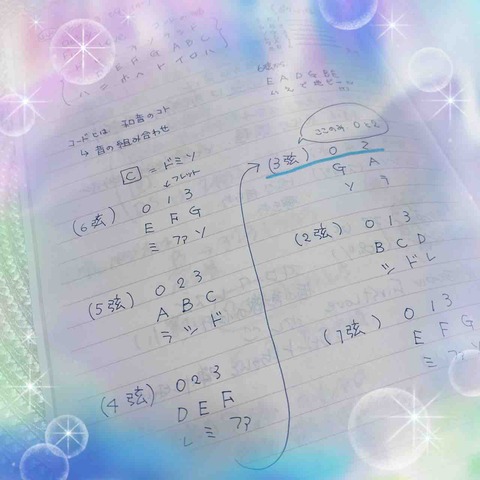 E F G A B C
ハ ニ ホ ヘ ト イ ロ ハ
E A D G B E
コードとは 和音のコト
↳ 音の組み合わせ
C = ドミソ
フレット
(6弦) 0 1 3
E F G
ミ ファ ソ
(5弦) 0 2 3
A B C
ラ シ ド
(4弦) 0 2 3
D E F
レ ミ ファ
(3弦) 0 2
G A
ソ ラ
(2弦) 0 1 3
B C D
シ ド レ
(1弦) 0 1 3
E F G
ミ ファ ソ